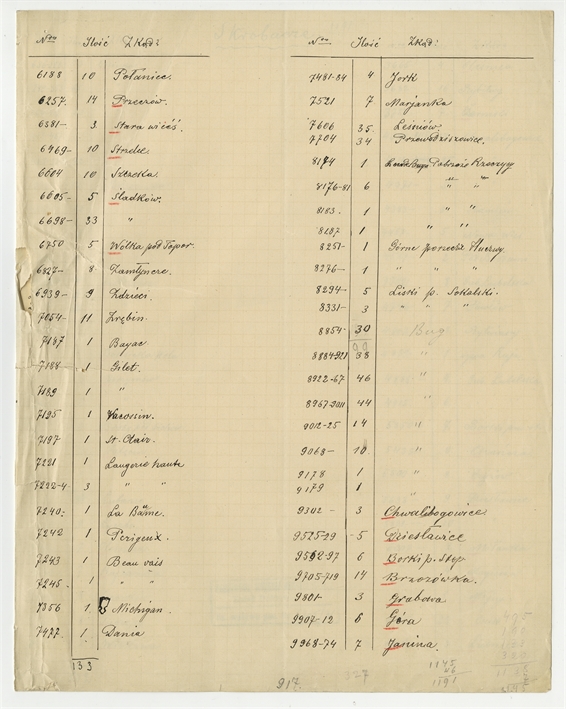 Nru Ilość Zkąd:
6188 10 Połaniec.
6257. 14 Przeczów.
6381- 3 Stara wieś
6469- 10 Strzelce
6604 10 Szczeka
6605- 5 Śladków.
6698- 33 "
6750 5 Wólka pod Topor.
6827- 8
6939- 9 Zdzieci.
7054- 11 Zrębin.
7187 1 Bayac
7188- 1 Gilet.
7189 1 "
7195 1
7197 1 St. Clair.
7221 1 Laugerie haute
7222-4 3 " "
7240- 1 La Balme.
7242 1 Périgeux.
7243 1 Beau vais
7245- 1 " "
7356 1 Michigan.
7477 1. Dania
133
Nru Ilość Zkąd:
7481-84 4 Jork
7521 7 Marjanka
7606 35 Leśniów.
7704 34
8174 1
8176-81 6 " "
8183. 1 " "
8187 1 " "
8251- 1 Górne porzecze Huczwy
8276- 1 " " "
8294- 5 Liski p. Sokalski.
8331- 3 " " "
8854- 30 Berg
8884-921 38 "
8922-67 46 "
8967-9011 44 "
9012-25 14 "
9068- 10 "
9178 1 "
9179 1 "
9302- 3 Chwalibogowice.
9525-29 5 Dziesławice
9562-97 6 Borki p. Stop
9705-719 14 Brzozówka.
9801- 3 Grabowa
9907-12 6 Góra
9968-74 7 Janina.
917 327
1145
46
1191